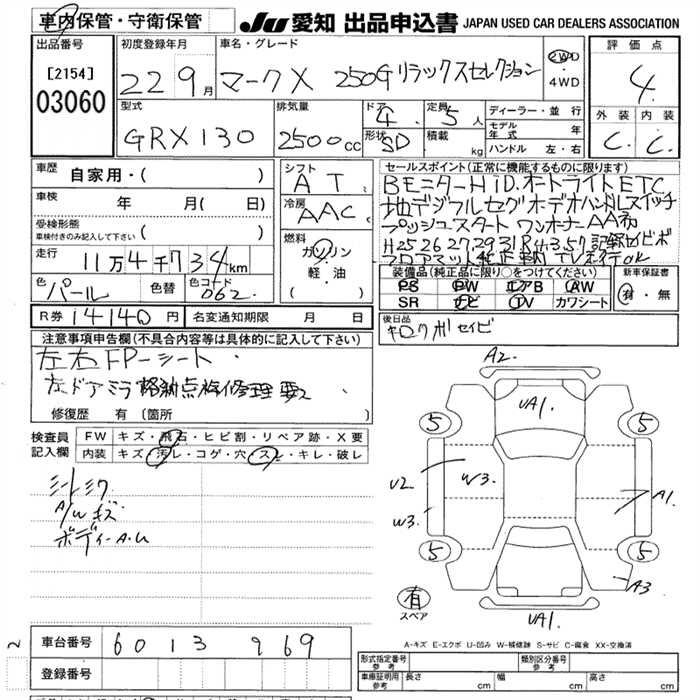 車内保管・守衛保管 JU 愛知 出品申込書 JAPAN USED CAR DEALERS ASSOCIATION
出品番号 [2154] 03060
初度登録年月 22 9月
車名・グレード マークX 250G リラックスセレクション
2WD・4WD
評価点 4
外装 C 内装 C
型式 GRX130
排気量 2500cc
ドア 4 定員 5人
形状 SD 積載 kg
ディーラー・並行
モデル年式 年
ハンドル 左・右
車歴 自家用・( )
車検 年 月( 日)
受検形態 車検付きのみ記入して下さい ( )
走行 11万4千734km
色 パール 色替 色コード 062
シフト AT
冷房 AAC
燃料 ガソリン・軽油
セールスポイント(正常に機能するものに限ります)
Bモニター HiD. オートライト ETC
地デジフルセグオーデオハンドルスイッチ
プッシュスタート ワンオーナー AA
H25 26 27 29 31 R 記録
フロアマット純正 TV OK
装備品(純正品に限り○をつけてください)
PS PW エアB AW
SR ナビ TV カワシート
新車保証書 有・無
R券 14140円 名変通知期限 月 日
後日品 キロクボ セイビ
注意事項申告欄(不具合内容等は具体的に記入して下さい)
左右FPーシート
左ドアミラー格納点検修理要
修復歴 有(箇所 )
検査員記入欄
FW キズ・飛石・ヒビ割・リペア跡・X要
内装 キズ・汚レ・コゲ・穴・スレ・キレ・破レ
シートシワ
A/Wキズ
ボディーA.U
A2.
UA1.
5 5
U2 W3.
W3. A1.
5 5
A3
有 スペア
UA1.
A-キズ E-エクボ U-凹み W-補修跡 S-サビ C-腐食 XX-交換済
車台番号 6013969
登録番号
形式指定番号 参考 類別区分番号 参考
車庫証明用 参考 長さ cm 幅 cm 高さ cm
2